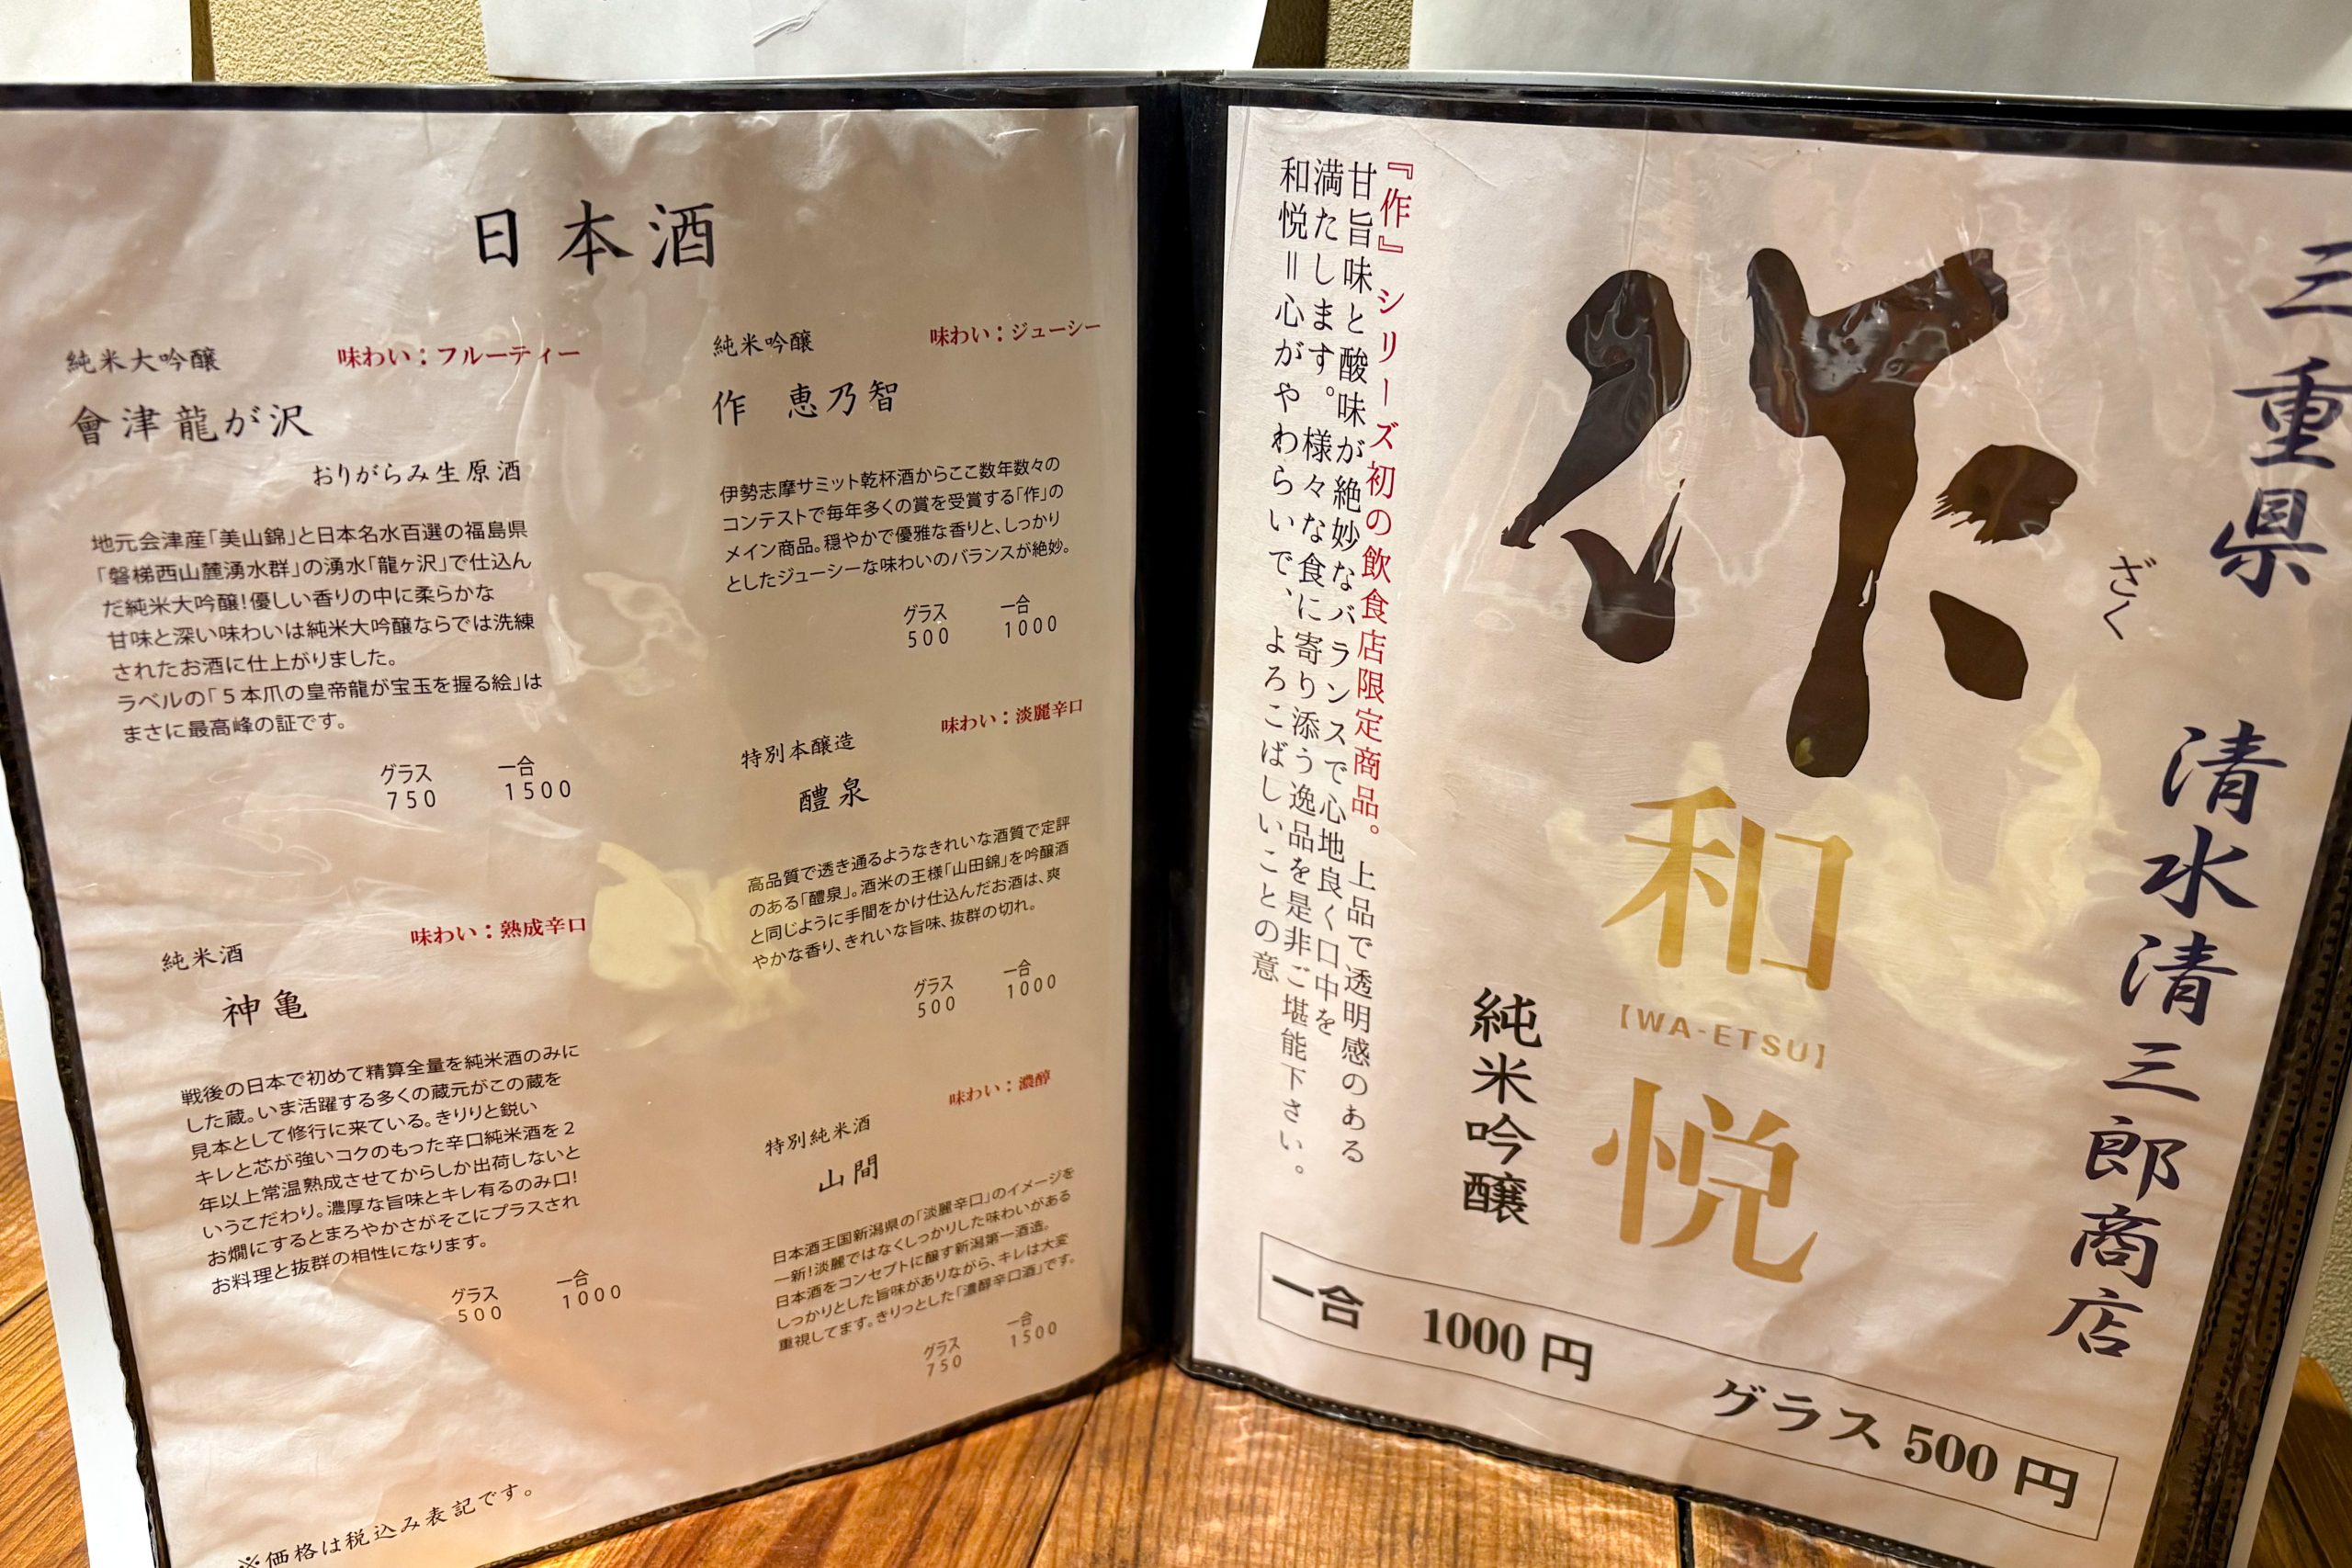 日本酒
純米大吟醸
味わい：フルーティー
會津龍が沢
おりがらみ生原酒
地元会津産「美山錦」と日本名水百選の福島県
「磐梯西山麓湧水群」の湧水「龍ヶ沢」で仕込ん
だ純米大吟醸！優しい香りの中に柔らかな
甘味と深い味わいは純米大吟醸ならでは洗練
されたお酒に仕上がりました。
ラベルの「５本爪の皇帝龍が宝玉を握る絵」は
まさに最高峰の証です。
グラス 一合
750 1500
純米酒
味わい：熟成辛口
神亀
戦後の日本で初めて精算全量を純米酒のみに
した蔵。いま活躍する多くの蔵元がこの蔵を
見本として修行に来ている。きりりと鋭い
キレと芯が強いコクのもった辛口純米酒を２
年以上常温熟成させてからしか出荷しないと
いうこだわり。濃厚な旨味とキレ有るのみ口！
お燗にするとまろやかさがそこにプラスされ
お料理と抜群の相性になります。
グラス 一合
500 1000
※価格は税込み表記です。
純米吟醸
味わい：ジューシー
作 恵乃智
伊勢志摩サミット乾杯酒からここ数年数々の
コンテストで毎年多くの賞を受賞する「作」の
メイン商品。穏やかで優雅な香りと、しっかり
としたジューシーな味わいのバランスが絶妙。
グラス 一合
500 1000
味わい：淡麗辛口
特別本醸造
醴泉
高品質で透き通るようなきれいな酒質で定評
のある「醴泉」。酒米の王様「山田錦」を吟醸酒
と同じように手間をかけ仕込んだお酒は、爽
やかな香り、きれいな旨味、抜群の切れ。
グラス 一合
500 1000
味わい：濃醇
特別純米酒
山間
日本酒王国新潟県の「淡麗辛口」のイメージを
一新！淡麗ではなくしっかりした味わいがある
日本酒をコンセプトに醸す新潟第一酒造。
しっかりとした旨味がありながら、キレは大変
重視してます。きりっとした「濃醇辛口酒」です。
グラス 一合
750 1500
三重県 清水清三郎商店
ざく
作
和
【WA-ETSU】
悦
純米吟醸
『作』シリーズ初の飲食店限定商品。
上品で透明感のある
甘旨味と酸味が絶妙なバランスで心地良く口中を
満たします。様々な食に寄り添う逸品を是非ご堪能下さい。
和悦＝心がやわらいで、よろこばしいことの意
一合 1000円 グラス500円